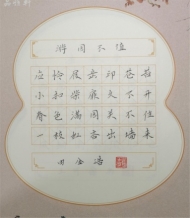 游园不值
应怜屐齿印苍苔
小扣柴扉久不开
春色满园关不住
一枝红杏出墙来